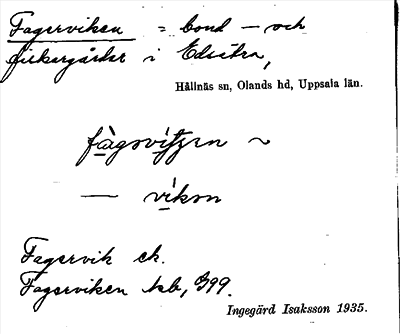 Fagerviken = bond- och
fiskargårdar i Edsätra,
Hållnäs sn, Olands hd, Uppsala län.
fàgərvi̇̀ʒən ~
— vikən
Fagervik ek.
Fagerviken
Ingegärd Isaksson 1935.